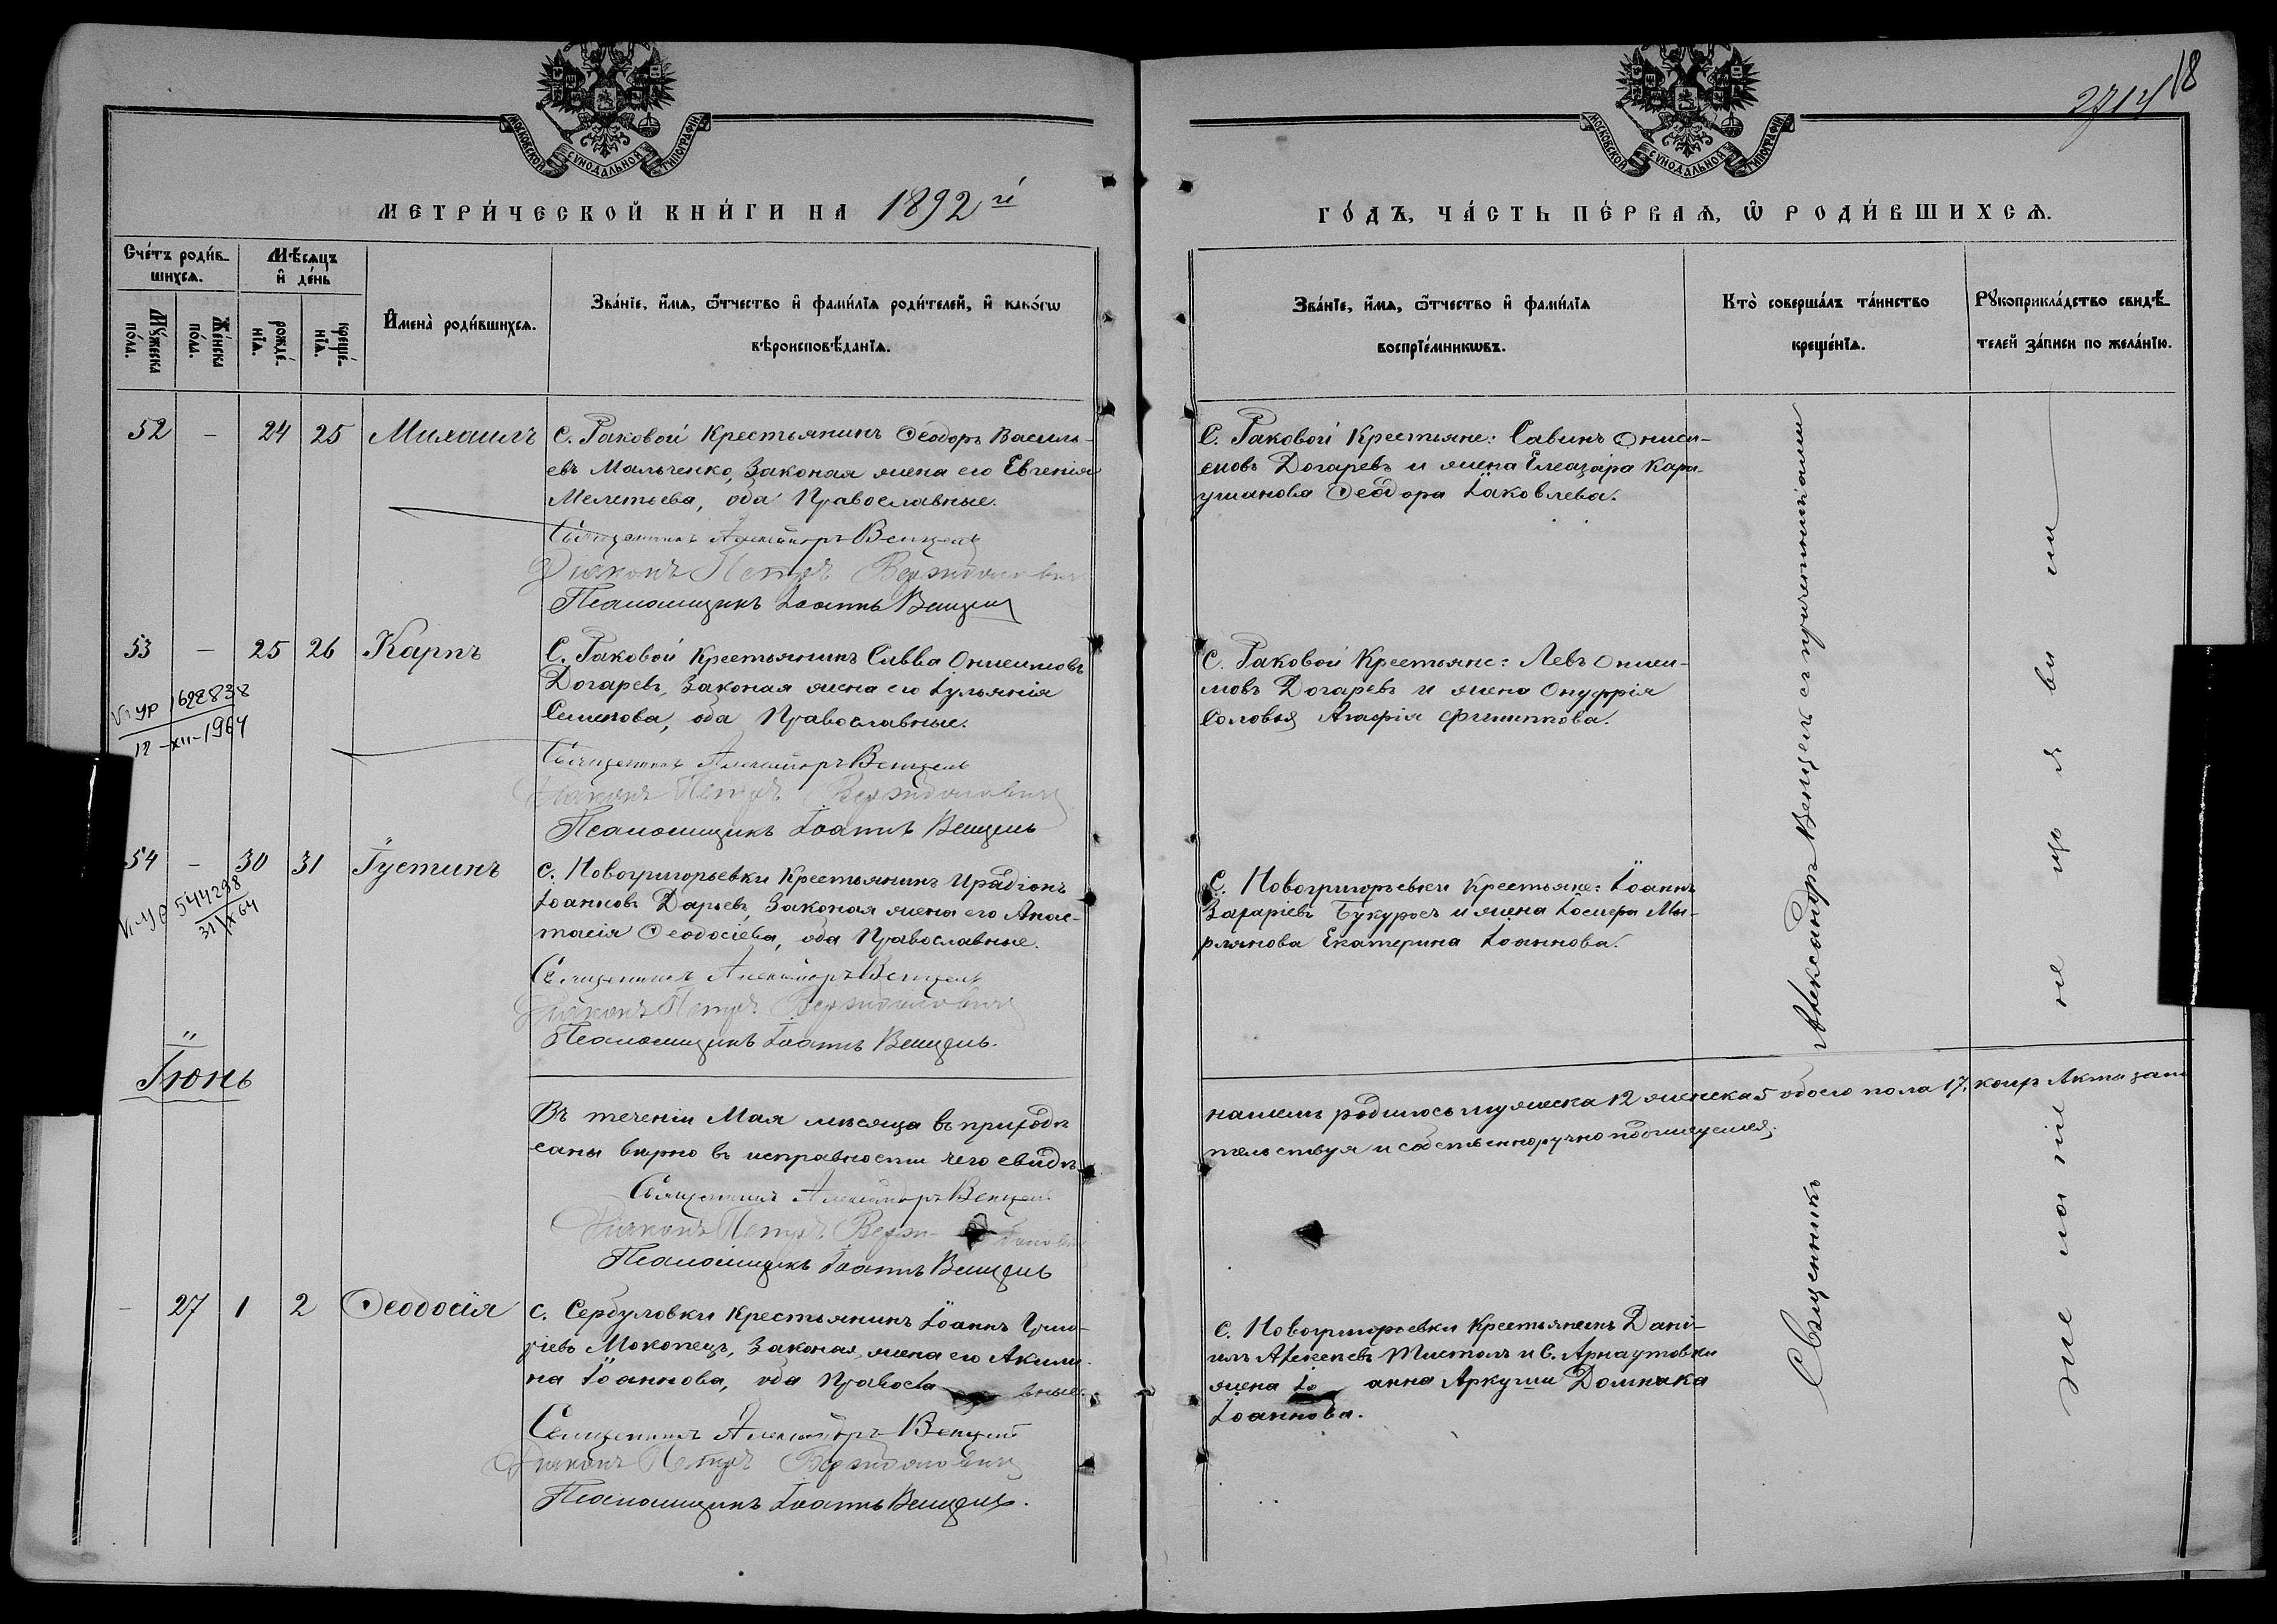 18
2714
МОСКОВСКОЙ СѴНОДАЛЬНОЙ ТИПОГРАФІИ
МОСКОВСКОЙ СѴНОДАЛЬНОЙ ТИПОГРАФІИ
МЕТРИ́ЧЕСКОЙ КНИ́ГИ НА 1892й
ГО́ДЪ, ЧА́СТЬ ПЕ́РВАѦ, Ѽ РОДИ́ВШИХСѦ.
Сче́тъ роди́в-
шихсѧ.
Му́жеска по́ла.
Же́нска по́ла.
Мѣ́сѧцъ
и҆ де́нь
рожде́-
нїѧ.
креще́-
нїѧ.
И҆мена̀ роди́вшихсѧ.
Зва́нїе, и҆́мѧ, ѻ҆́тчество и҆ фами́лїѧ роди́телей, и҆ како́гѡ
вѣроисповѣ́данїѧ.
Зва́нїе, и҆́мѧ, ѻ҆́тчество и҆ фами́лїѧ
воспрїе́мникѡвъ.
Кто̀ соверша́лъ та́инство
креще́нїѧ.
Рꙋкоприкла́дство свидѣ́-
телей за́писи по жела́нїю.
52 - 24 25 Михаилъ
С. Раковой Крестьянинъ Ѳеодоръ Василь-
евъ Мальченко, Законая жена его Евгенія
Мелетьева, оба Православные.
Священникъ Александръ Венцель
Діаконъ Петръ
Псаломщикъ Іоаннъ Венцель
С. Раковой Крестьяне: Савинъ Ониси-
мовъ Догаревъ и жена Елеазара Кара-
ушанова Ѳеодора Іаковлева.
53 - 25 26 Карпъ
С. Раковой Крестьянинъ Савва Онисимовъ
Догаревъ, Законая жена его Іульянія
Семенова, оба Православные.
Священникъ Александръ Венцель
Діаконъ Петръ
Псаломщикъ Іоаннъ Венцель
1622838
12-XII-1964
С. Раковой Крестьяне: Левъ Ониси-
мовъ Догаревъ и жена Онуфрія
Соловья Агафія Филиппова.
54 - 30 31 Іустинъ
С. Новогригорьевки Крестьянинъ Иродіонъ
Іоанновъ Дарьевъ, Законая жена его Анас-
тасія Ѳеодосіева, оба Православные.
Священникъ Александръ Венцель
Діаконъ Петръ
Псаломщикъ Іоаннъ Венцель.
544298
С. Новогригорьевки Крестьяне: Іоаннъ
Захаріевъ Букуросъ и жена Іосифа Мы-
рлянова Екатерина Іоаннова.
Іюнь
Въ теченіи Мая мѣсяца въ приходѣ
нашемъ родилось мужеска 12 женска 5 обоего пола 17, коихъ Акты запи
саны вѣрно въ исправности чего свидѣ-
тельствуя и собственноручно подписуемся;
Священникъ Александръ Венцель
Діаконъ Петръ
Псаломщикъ Іоаннъ Венцель
- 27 1 2 Ѳеодосія
С. Сербуловки Крестьянинъ Іоаннъ Григо-
ріевъ Моконецъ, Законая жена его Акили-
на Іоаннова, оба Православные.
Священникъ Александръ Венцель
Діаконъ Петръ
Псаломщикъ Іоаннъ Венцель.
С. Новогригорьевки Крестьянинъ Дані-
илъ Алексеевъ Тистолъ и С. Арнаутовки
жена Іоанна Аркуши Домника
Іоаннова.
Священникъ Александръ Венцель съ причетниками